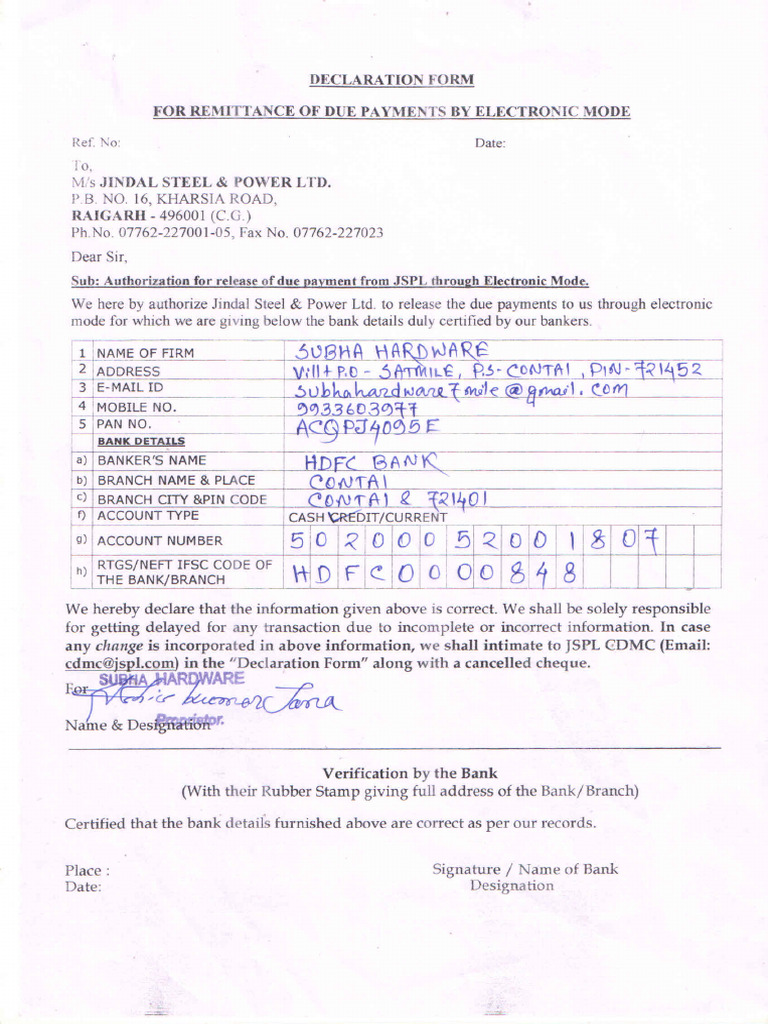 DECLARATION FORM
FOR REMITTANCE OF DUE PAYMENTS BY ELECTRONIC MODE
Ref. No: Date:
To,
M/s JINDAL STEEL & POWER LTD.
P.B. NO. 16, KHARSIA ROAD,
RAIGARH - 496001 (C.G.)
Ph.No. 07762-227001-05, Fax No. 07762-227023
Dear Sir,
Sub: Authorization for release of due payment from JSPL through Electronic Mode.
We here by authorize Jindal Steel & Power Ltd. to release the due payments to us through electronic
mode for which we are giving below the bank details duly certified by our bankers.
1 NAME OF FIRM SUBHA HARDWARE
2 ADDRESS Vill+P.O - SATMILE, P.S- CONTAI, PIN-721452
3 E-MAIL ID subhahardware7mile@gmail.com
4 MOBILE NO. 9933603977
5 PAN NO. ACQPJ4095E
BANK DETAILS
a) BANKER'S NAME HDFC BANK
b) BRANCH NAME & PLACE CONTAI
c) BRANCH CITY &PIN CODE CONTAI & 721401
f) ACCOUNT TYPE CASH CREDIT/CURRENT
g) ACCOUNT NUMBER 50200052001807
h) RTGS/NEFT IFSC CODE OF THE BANK/BRANCH HDFC0000848
We hereby declare that the information given above is correct. We shall be solely responsible
for getting delayed for any transaction due to incomplete or incorrect information. In case
any change is incorporated in above information, we shall intimate to JSPL CDMC (Email:
cdmc@jspl.com) in the "Declaration Form" along with a cancelled cheque.
SUBHA HARDWARE
For kumar Jana
Proprietor.
Name & Designation
Verification by the Bank
(With their Rubber Stamp giving full address of the Bank/Branch)
Certified that the bank details furnished above are correct as per our records.
Place : Signature / Name of Bank
Date: Designation